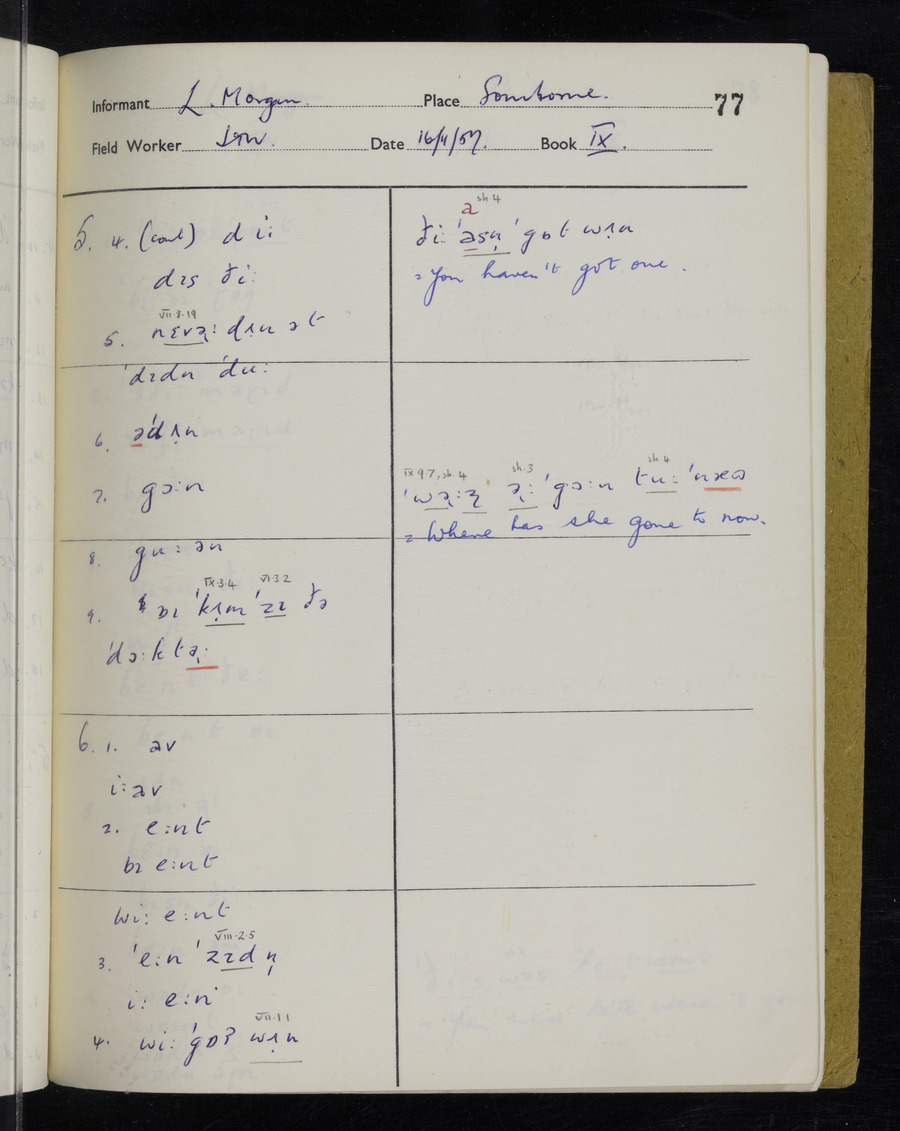 Informant L. Morgan. Place Somborne. 77
Field Worker Date 16/4/57. Book IX.
5. 4. (cont) d iː
dɪs ðiː
VII·8·19
5. nɛvəː dʌn ət
ˈdɪdn ˈduː
6. əˈdʌn
7. gɔːn
8. guːən
IX·3·4 VI·3·2
9. ɒɪ ˈkʌm ˈzɪ ðə
ˈdɔːktəː
6. 1. av
iːav
2. eːnt
ðɪ eːnt
wiː eːnt
VIII·2·5
3. ˈeːn ˈzɪd n̩
iː eːn
VII·1·1
4. wiː ˈgɒʔ wʌn
a sh.4
ðiː ˈasn̩ ˈgɒt wʌn
= You haven't got one.
IX 9·7, sh.4 sh.3 sh.4
əː ˈgɔːn tuː ˈnæʊ
= Where has she gone to now.